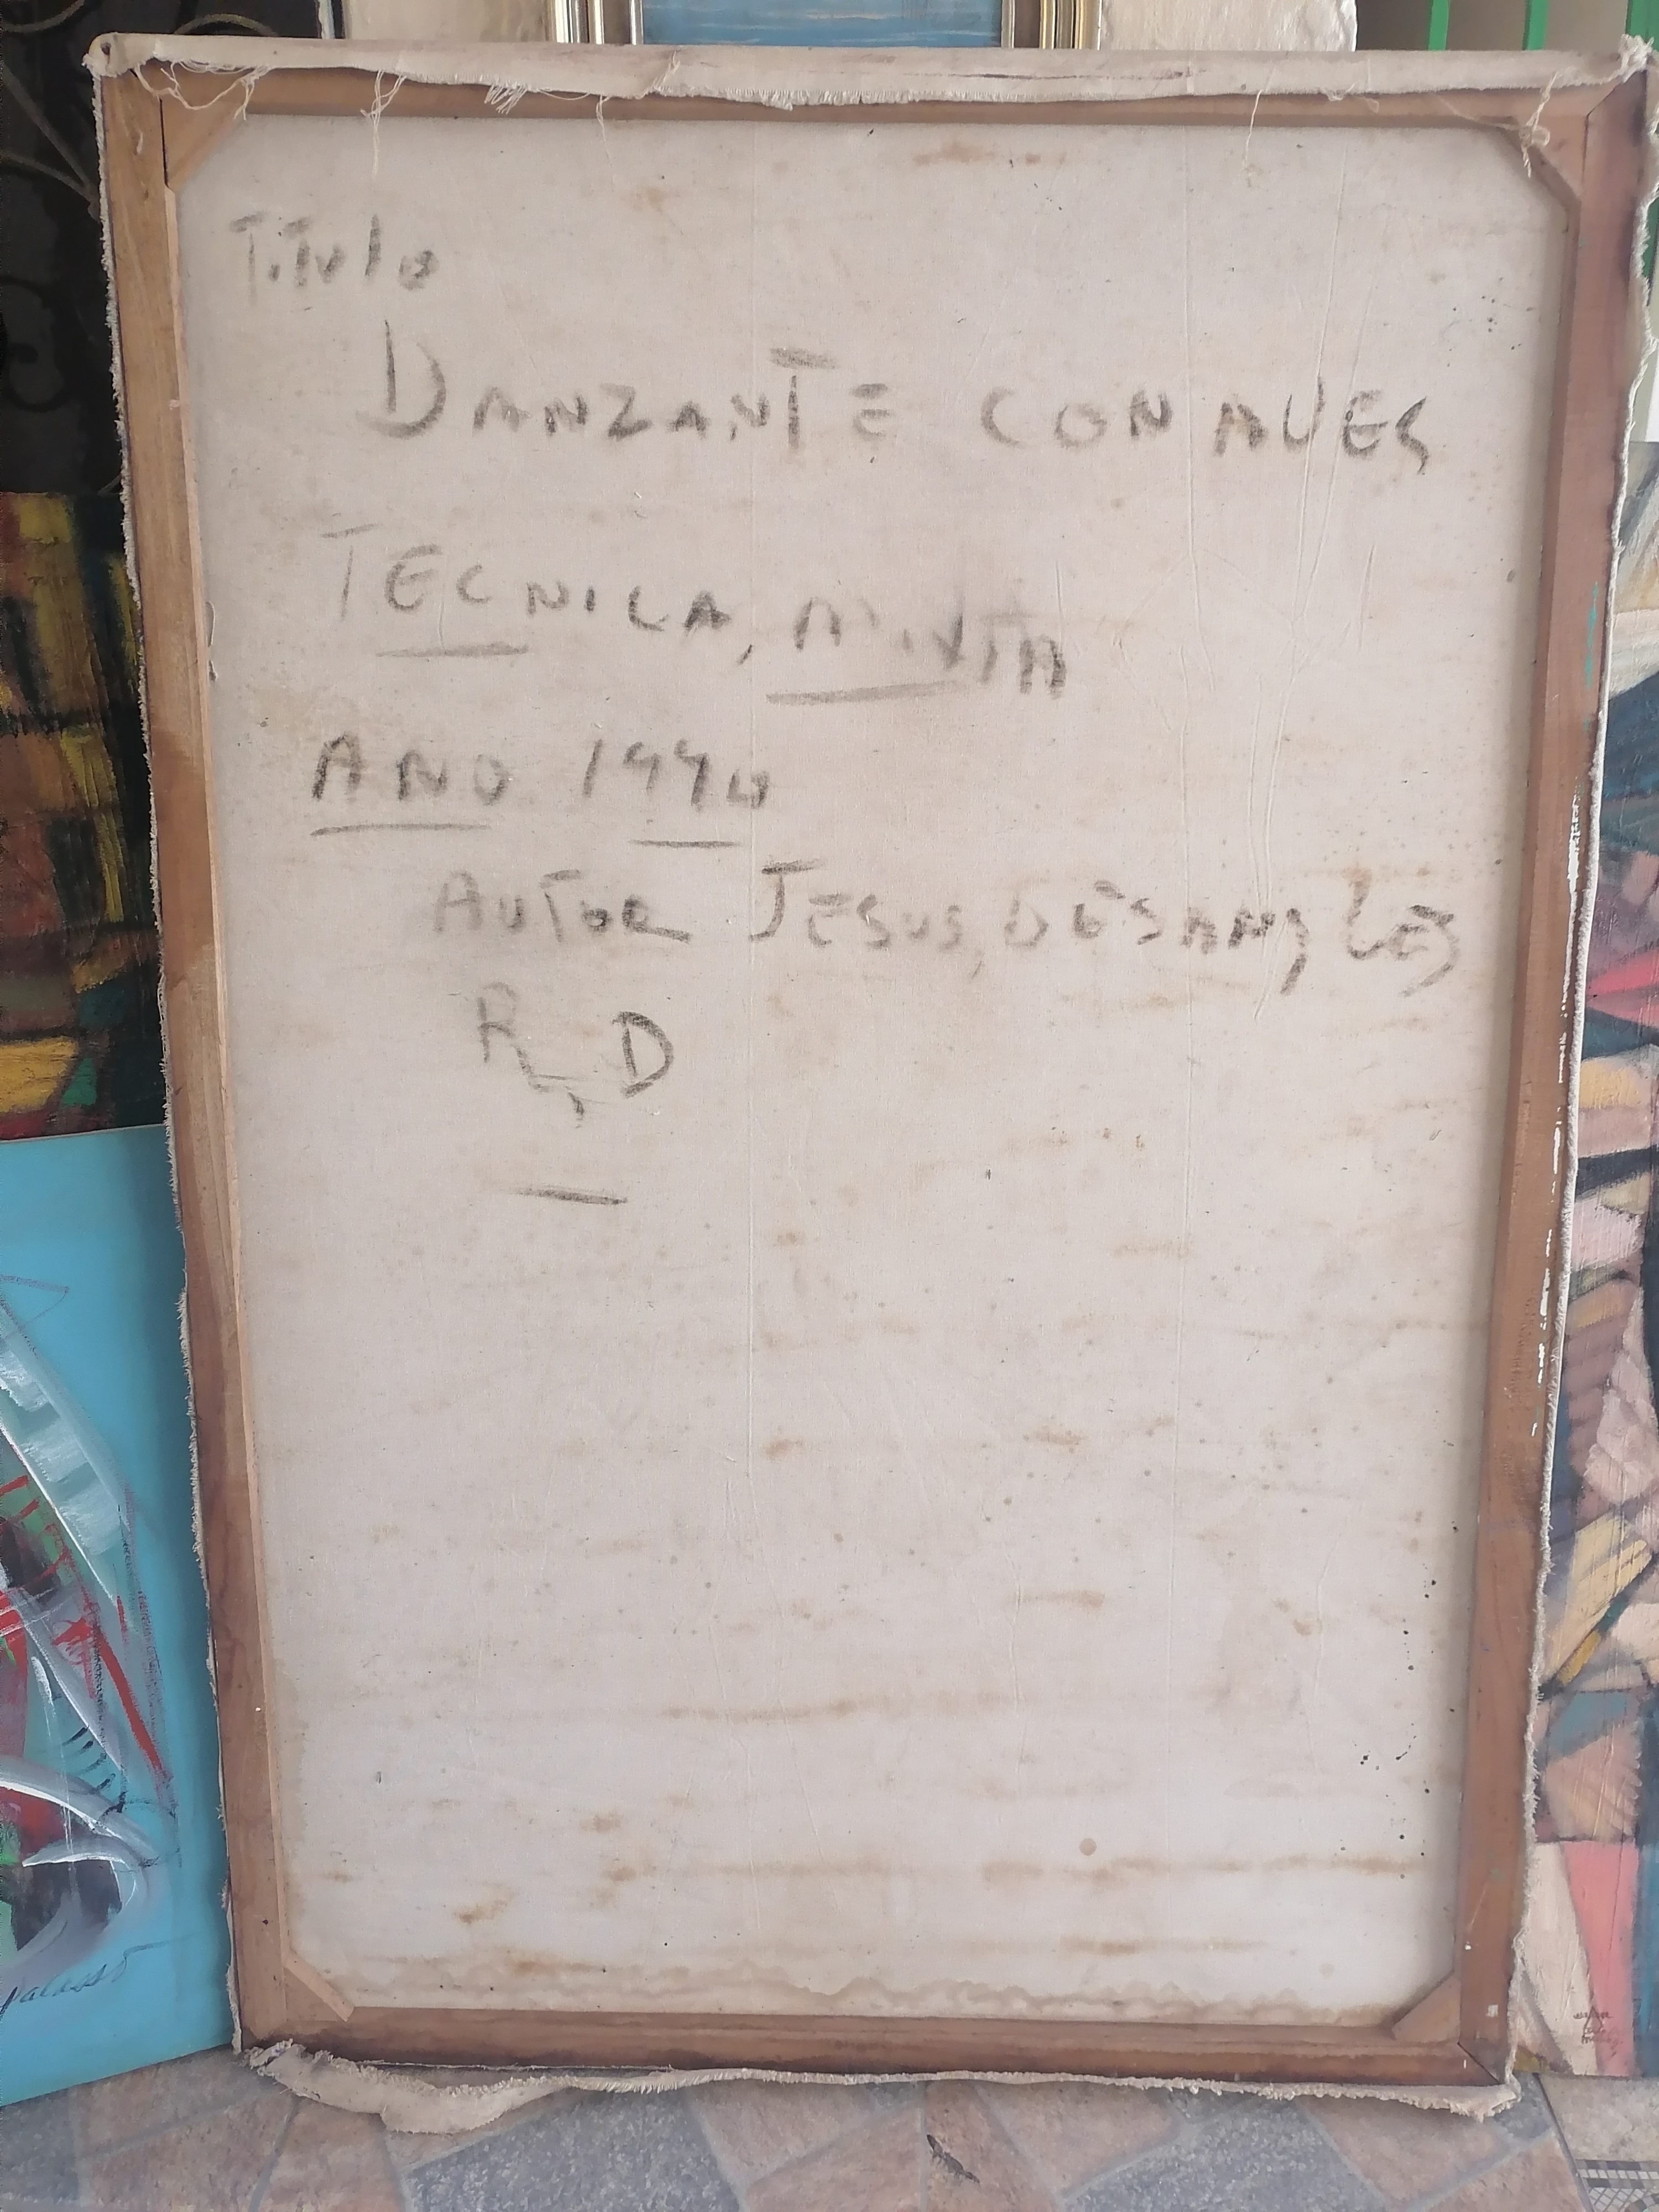 Titulo
DANZANTE CON AVES
TECNICA, MIXTA
ANO 1990
AUTOR JESUS, DESANGLES
R, D